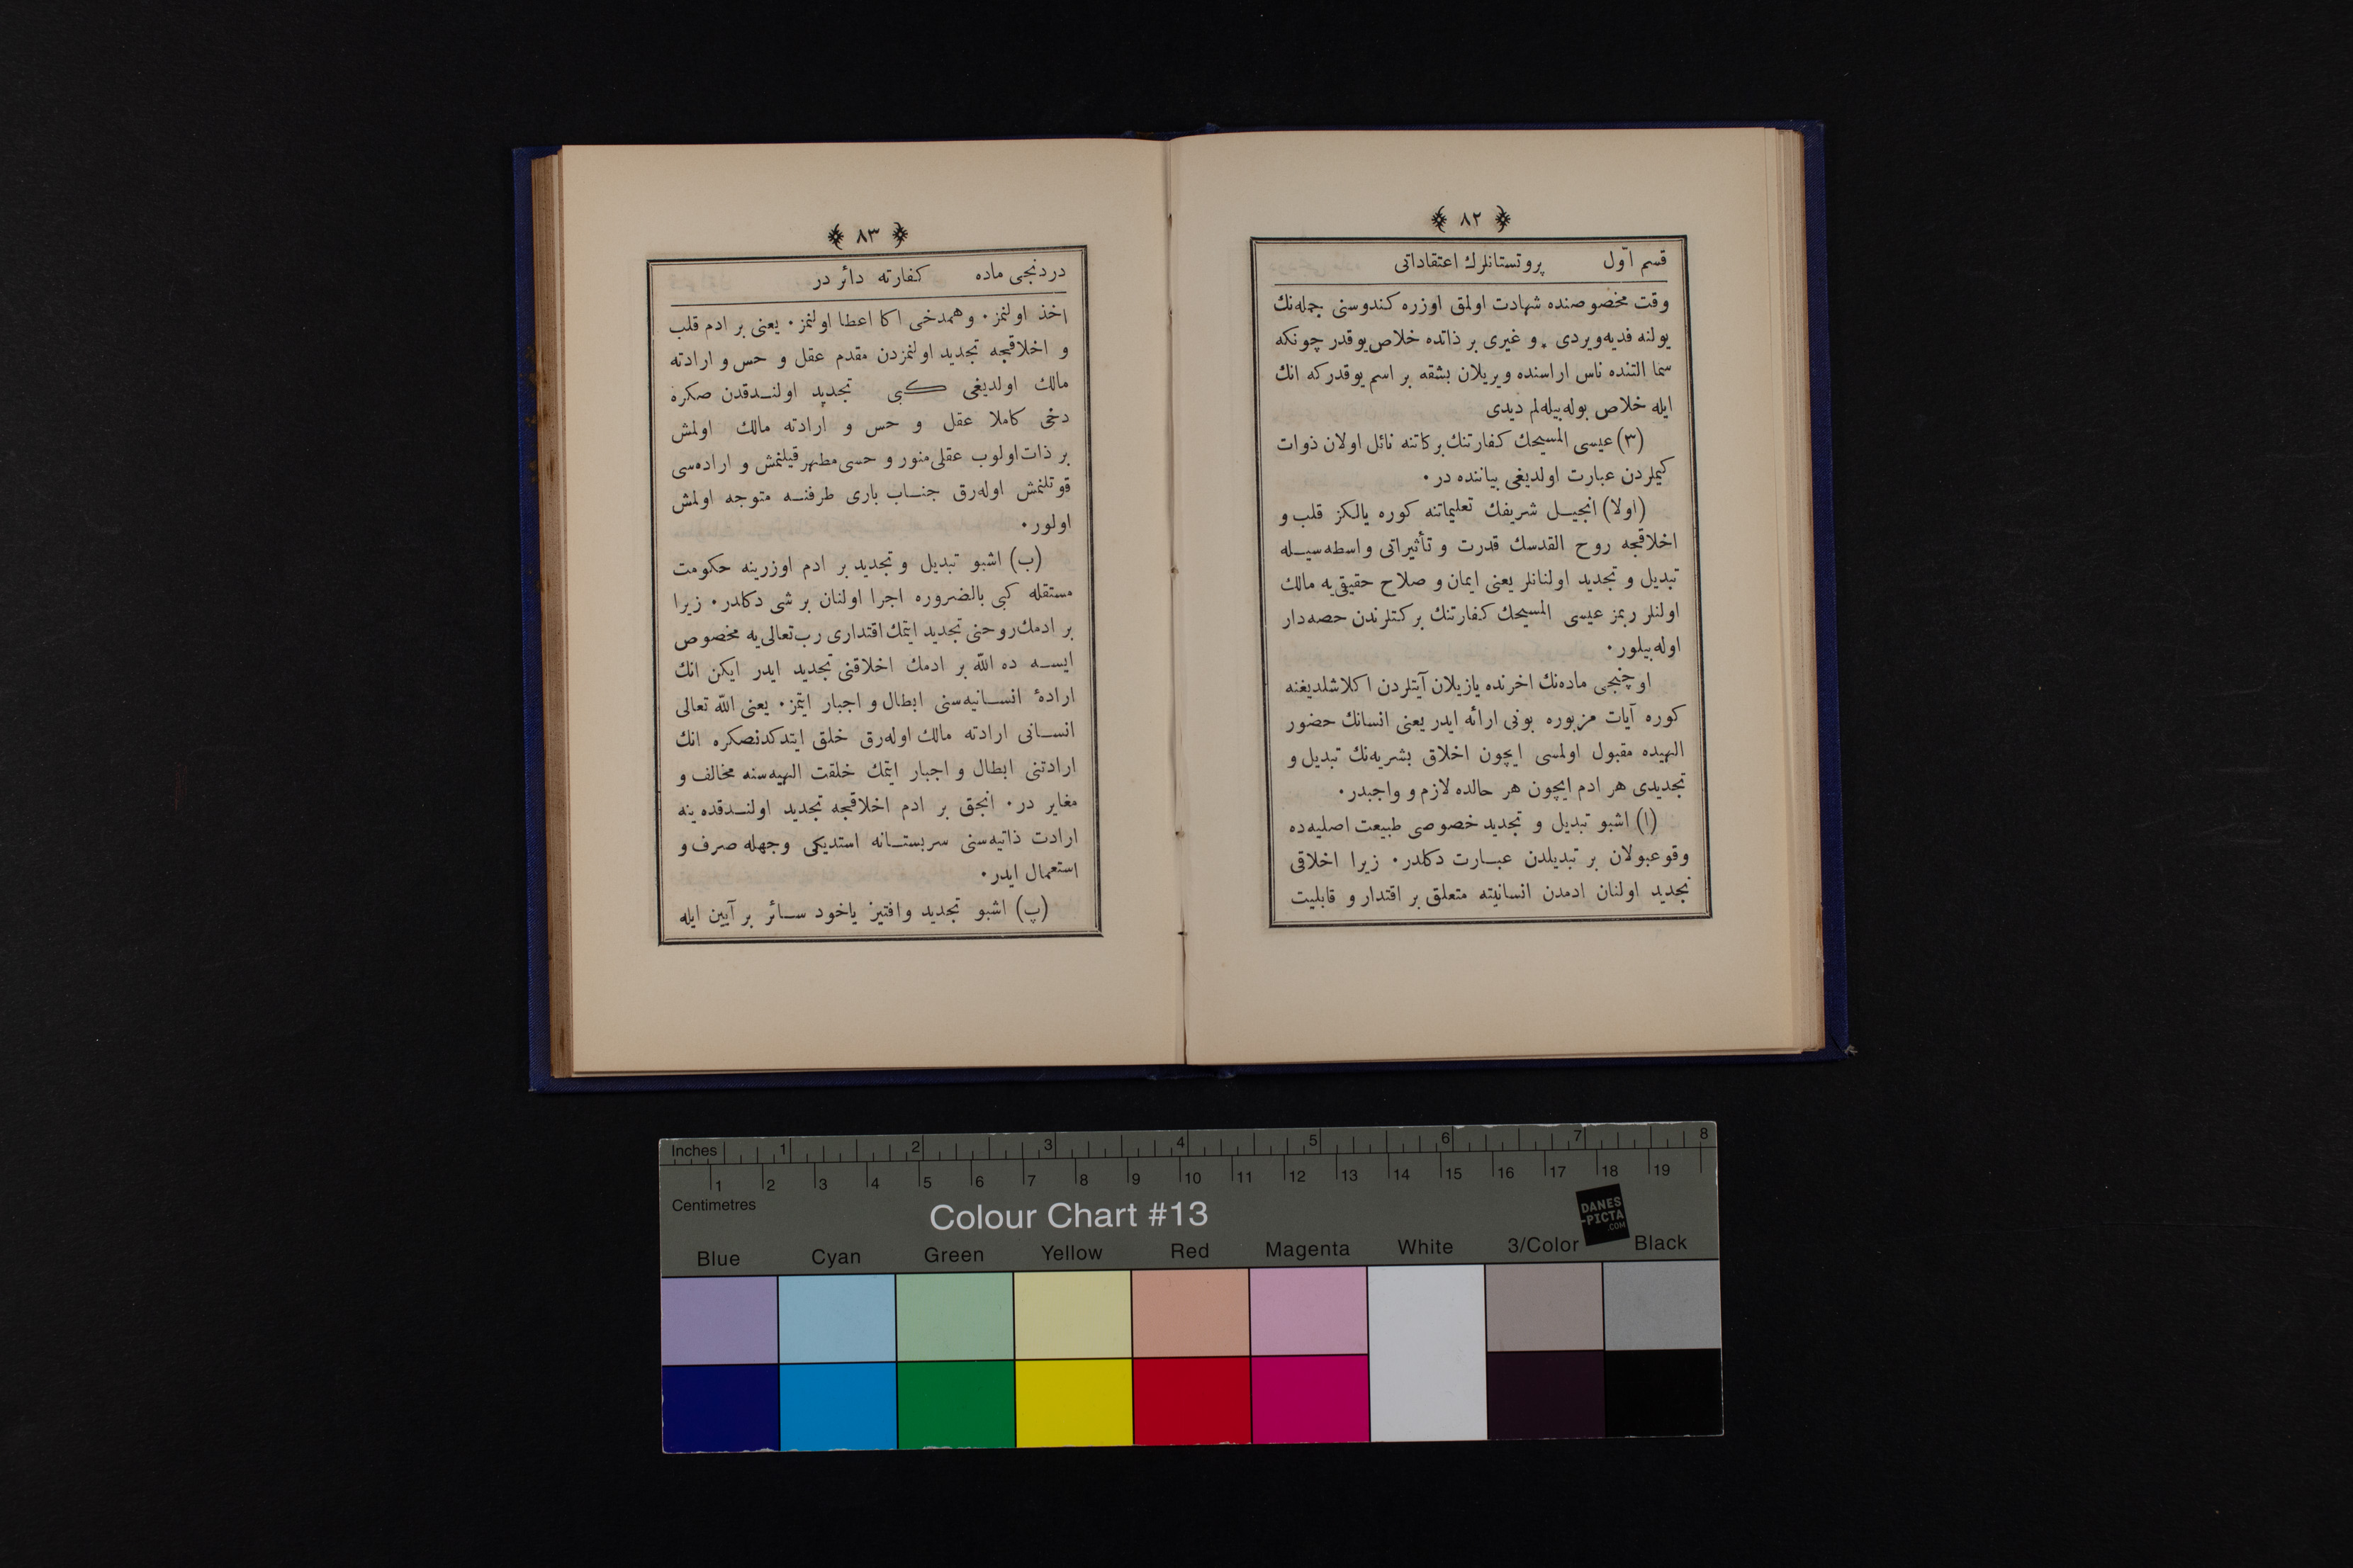 ﴿ ٨٢ ﴾
قسم اوّل پروتستانلرك اعتقاداتى
وقت مخصوصنده شهادت اولمق اوزره كندوسنى جمله‌نك
يولنه فديه‌ويردى . و غيرى بر ذاتده خلاص يوقدر چونكه
سما التنده ناس اراسنده ويريلان بشقه بر اسم يوقدركه انك
ايله خلاص بوله‌بيله‌لم ديدى
(٣) عيسى المسيحك كفارتنك بركاتنه نائل اولان ذوات
كيملردن عبارت اولديغى بياننده در٠
(اولا) انجيل شريفك تعليماتنه كوره يالكز قلب و
اخلاقجه روح القدسك قدرت و تأثيراتى واسطه‌سيله
تبديل و تجديد اولنانلر يعنى ايمان و صلاح حقيقى‌يه مالك
اولنلر ربمز عيسى المسيحك كفارتنك بركتلرندن حصه‌دار
اوله‌بيلور٠
اوچنجى ماده‌نك اخرنده يازيلان آيتلردن اكلاشلديغنه
كوره آيات مزبوره بونى ارائه ايدر يعنى انسانك حضور
الهيده مقبول اولمسى ايچون اخلاق بشريه‌نك تبديل و
تجديدى هر ادم ايچون هر حالده لازم و واجبدر٠
(ا) اشبو تبديل و تجديد خصوصى طبيعت اصليه‌ده
وقوعبولان بر تبديلدن عبارت دكلدر٠ زيرا اخلاقى
تجديد اولنان ادمدن انسانيته متعلق بر اقتدار و قابليت
﴿ ٨٣ ﴾
دردنجى ماده كفارته دائر در
اخذ اولنمز٠ وهمدخى اكا اعطا اولنمز٠ يعنى بر ادم قلب
و اخلاقجه تجديد اولنمزدن مقدم عقل و حس و ارادته
مالك اولديغى كبى تجديد اولندقدن صكره
دخى كاملا عقل و حس و ارادته مالك اولمش
بر ذات اولوب عقلى منور و حسى مطهر قيلنمش و اراده‌سى
قوتلنمش اوله‌رق جناب بارى طرفنه متوجه اولمش
اولور٠
(ب) اشبو تبديل و تجديد بر ادم اوزرينه حكومت
مستقله كبى بالضروره اجرا اولنان بر شى دكلدر٠ زيرا
بر ادمك روحنى تجديد ايتمك اقتدارى رب تعالى‌يه مخصوص
ايسه ده الله بر ادمك اخلاقنى تجديد ايدر ايكن انك
ارادهٔ انسانيه‌سنى ابطال و اجبار ايتمز٠ يعنى الله تعالى
انسانى ارادته مالك اوله‌رق خلق ايتدكدنصكره انك
ارادتنى ابطال و اجبار ايتمك خلقت الهيه‌سنه مخالف و
مغاير در٠ انجق بر ادم اخلاقجه تجديد اولندقده ينه
ارادت ذاتيه‌سنى سربستانه استديكى وجهله صرف و
استعمال ايدر٠
(پ) اشبو تجديد وافتيز ياخود سائر بر آيين ايله
Inches 1 2 3 4 5 6 7 8
1 2 3 4 5 6 7 8 9 10 11 12 13 14 15 16 17 18 19
Centimetres
Colour Chart #13
DANES
-PICTA
.COM
Blue Cyan Green Yellow Red Magenta White 3/Color Black